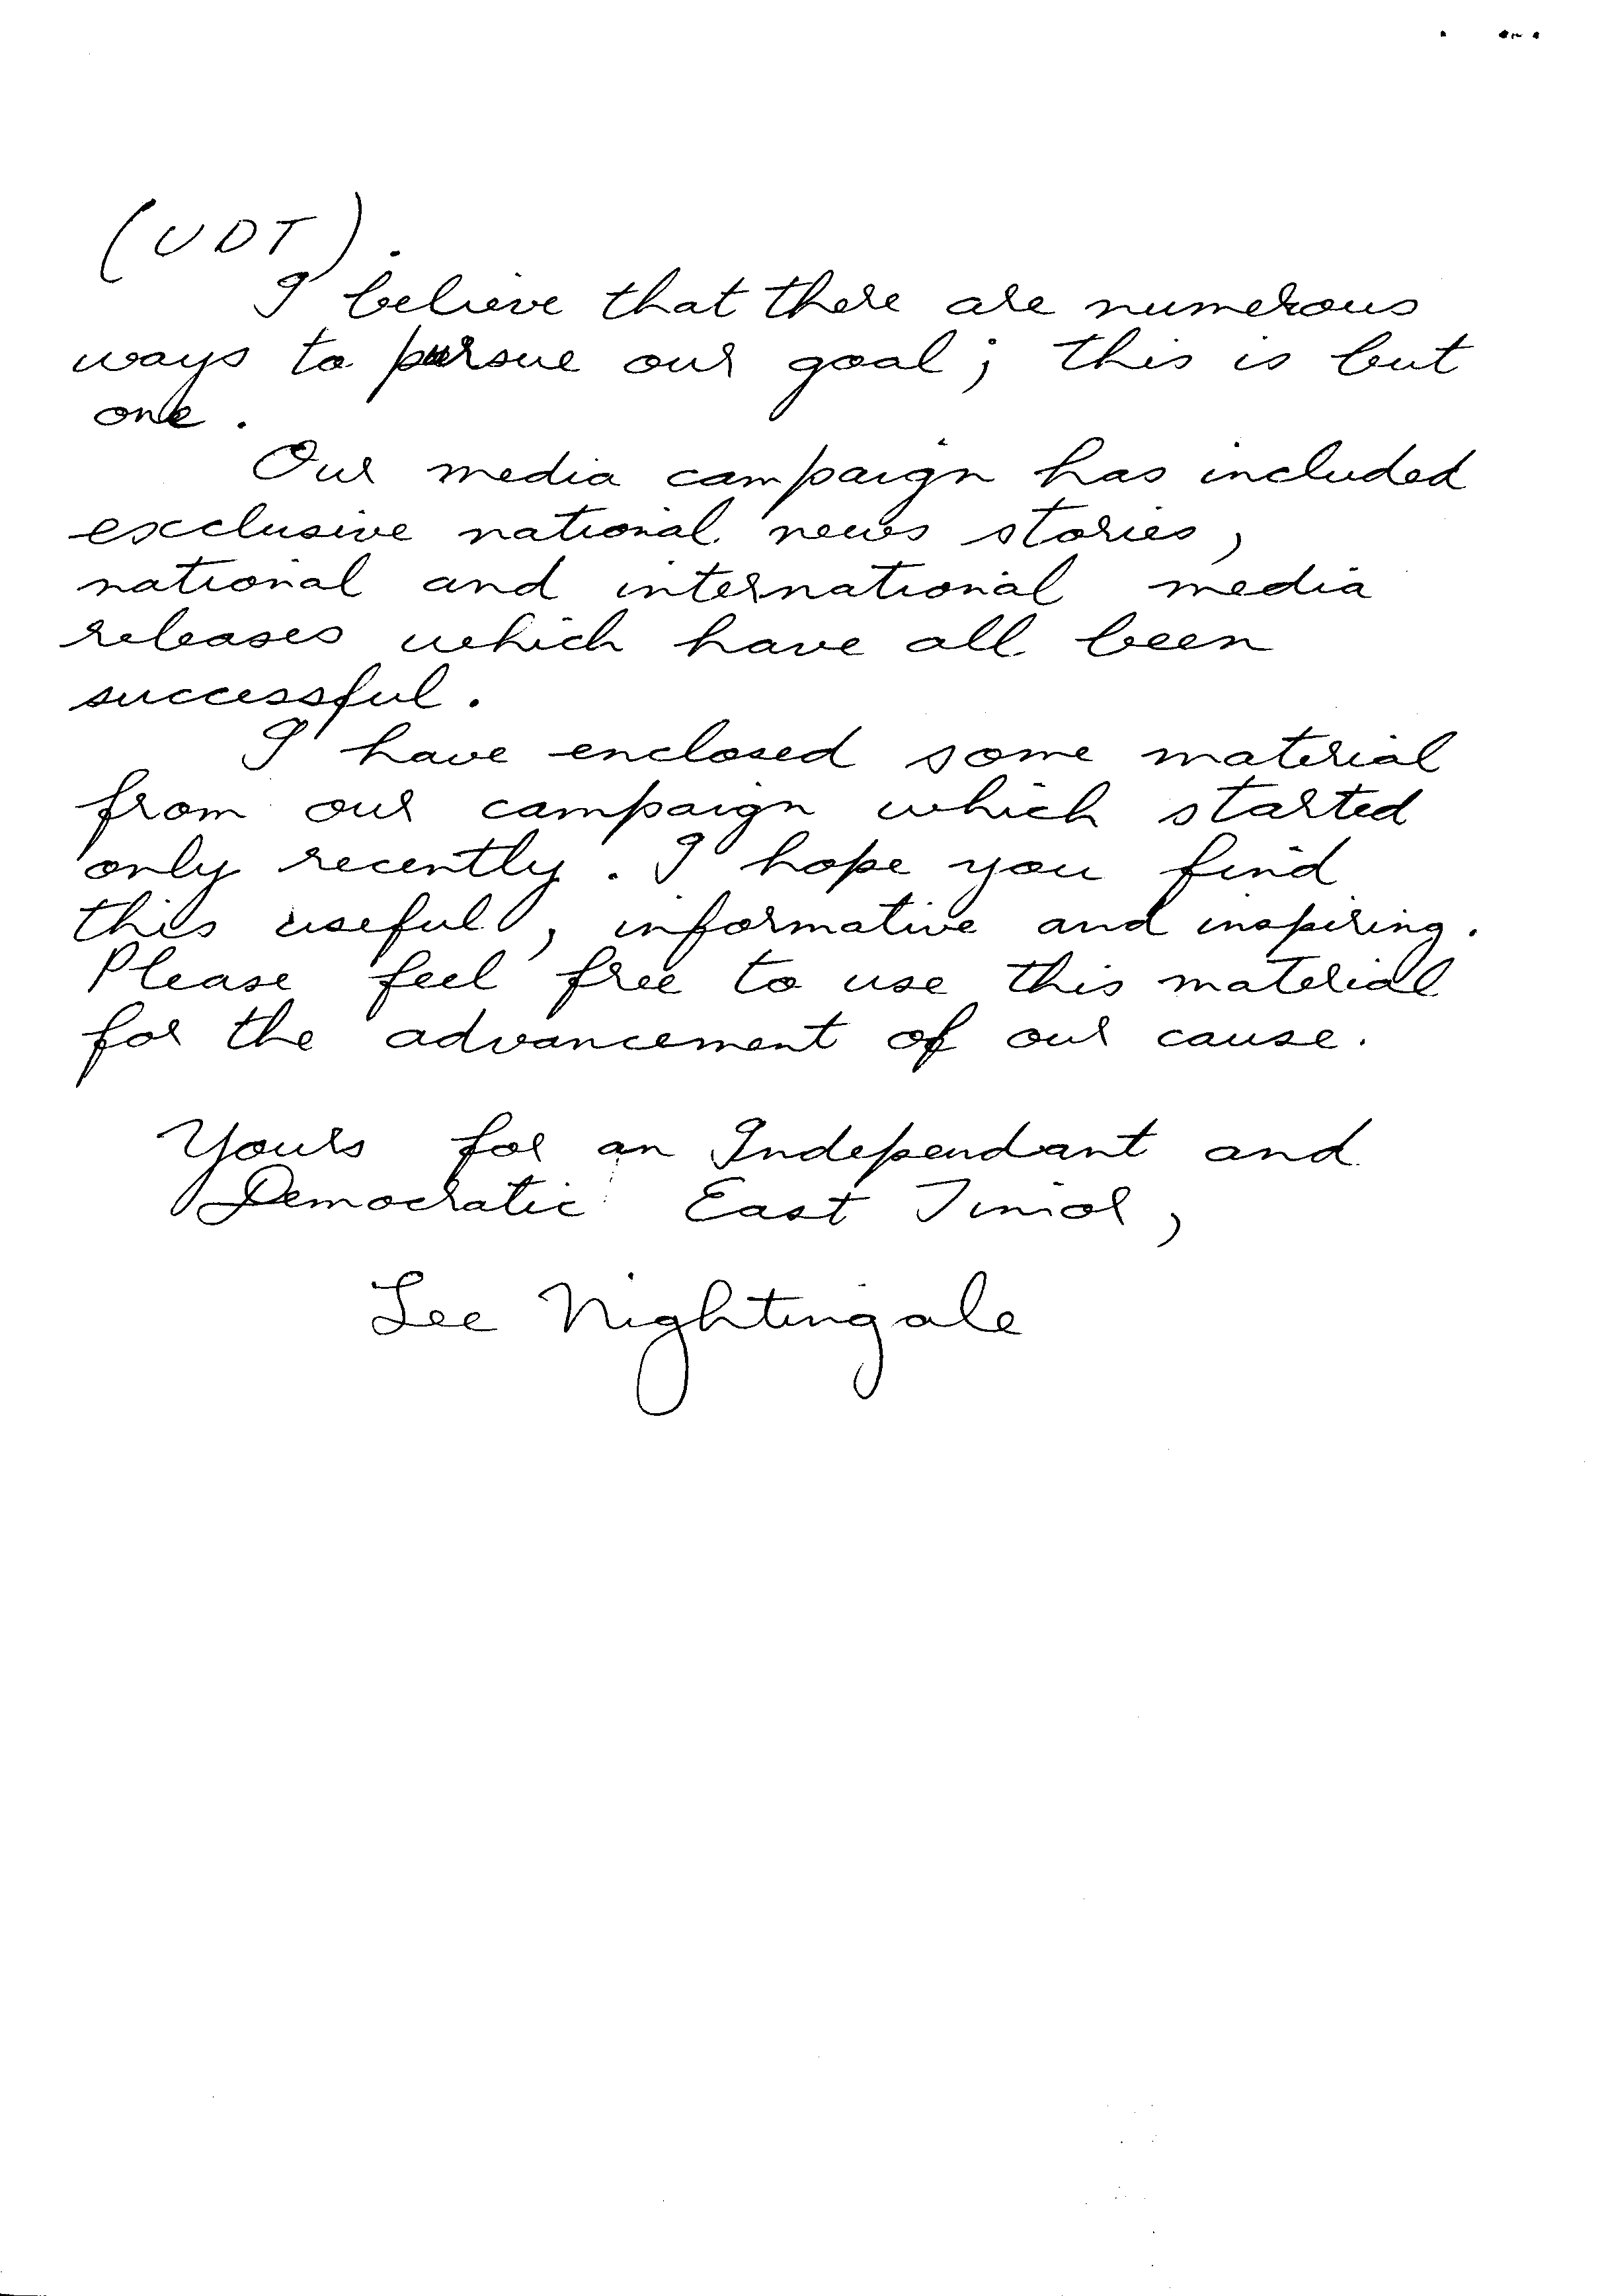 (UDT).
I believe that there are numerous
ways to pursue our goal; this is but
one.
Our media campaign has included
exclusive national news stories,
national and international media
releases which have all been
successful.
I have enclosed some material
from our campaign which started
only recently. I hope you find
this useful, informative and inspiring.
Please feel free to use this material
for the advancement of our cause.
Yours for an Independant and
Democratic East Timor,
Lee Nightingale